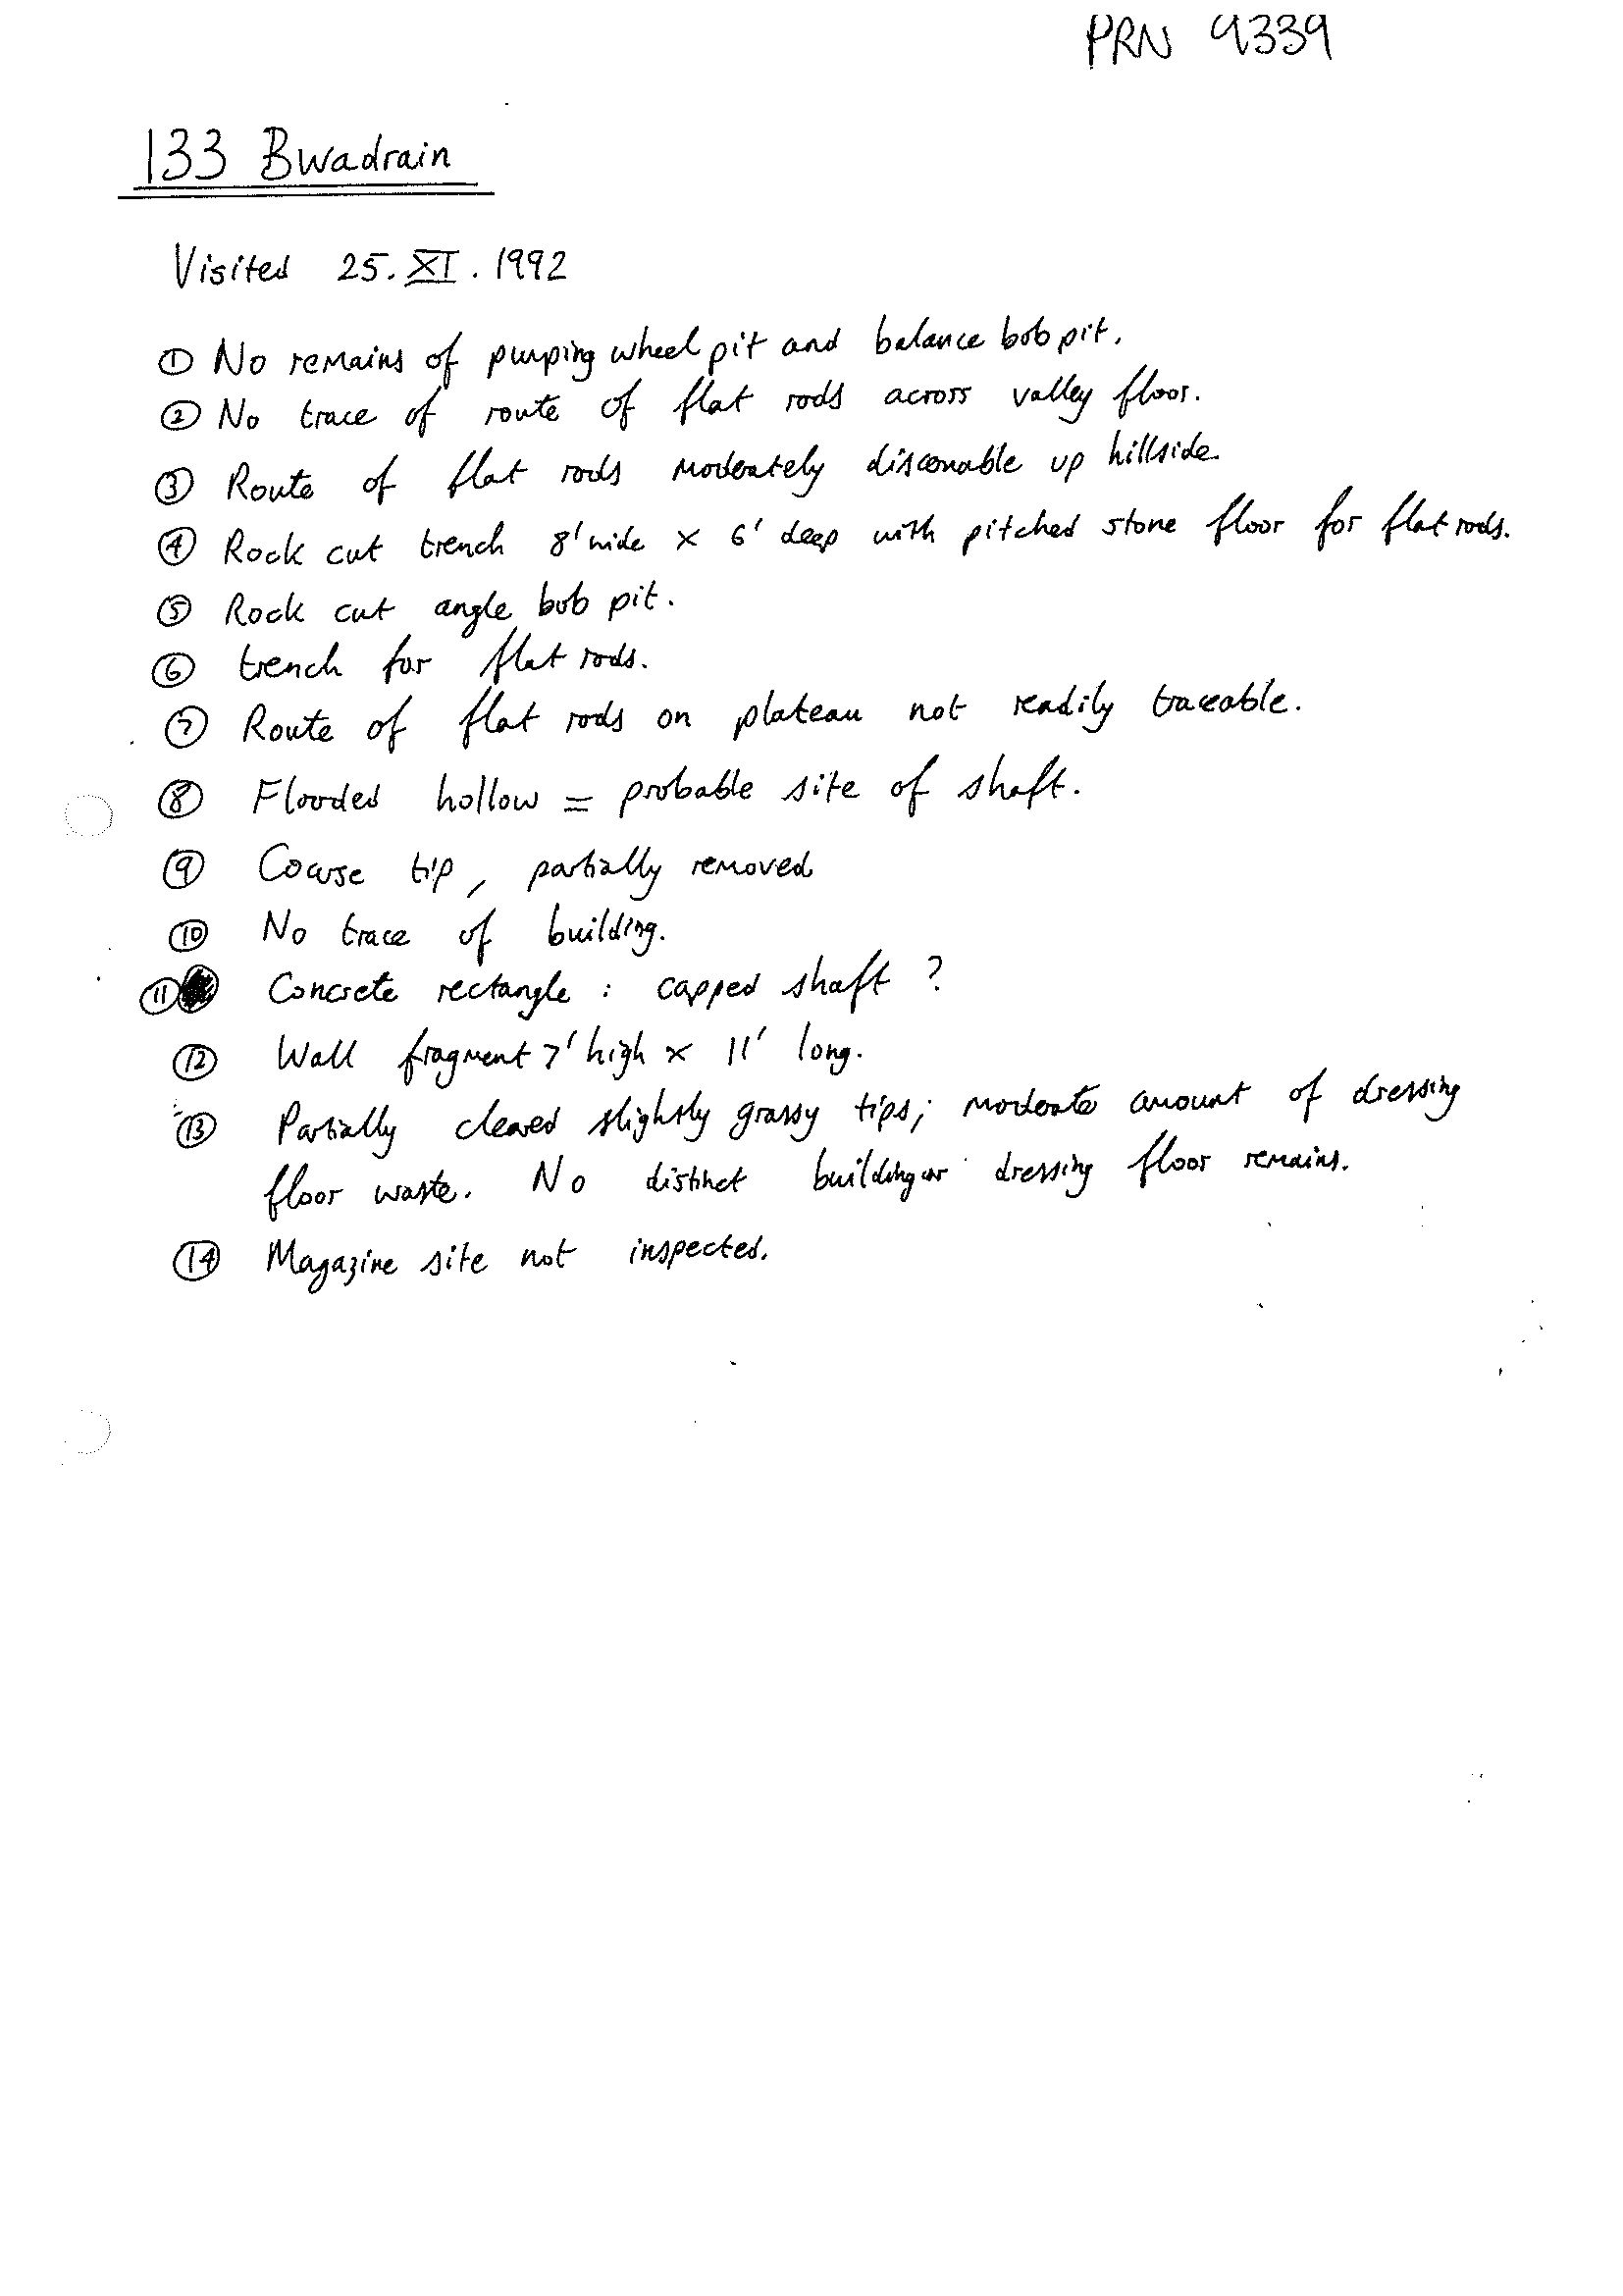 PRN 9339
133 Bwadrain
Visited 25.XI.1992
① No remains of pumping wheel pit and balance bob pit.
② No trace of route of flat rods across valley floor.
③ Route of flat rods moderately discernable up hillside.
④ Rock cut trench 8' wide x 6' deep with pitched stone floor for flat rods.
⑤ Rock cut angle bob pit.
⑥ trench for flat rods.
⑦ Route of flat rods on plateau not readily traceable.
⑧ Flooded hollow = probable site of shaft.
⑨ Coarse tip, partially removed
⑩ No trace of building.
⑪ Concrete rectangle : capped shaft ?
⑫ Wall fragment 7' high x 11' long.
⑬ Partially cleared slightly grassy tips; moderate amount of dressing
floor waste. No distinct building or dressing floor remains.
⑭ Magazine site not inspected.